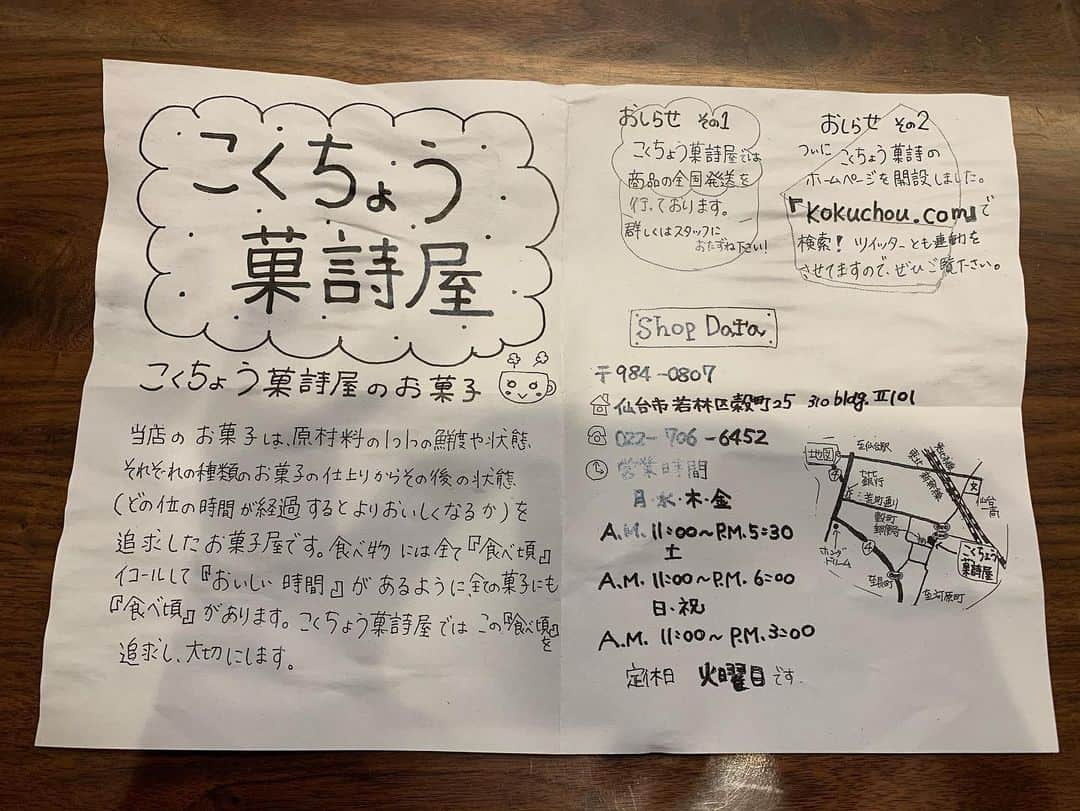 こくちょう
菓詩屋
こくちょう菓詩屋のお菓子
当店のお菓子は、原材料の1つ1つの鮮度や状態
それぞれの種類のお菓子の仕上りからその後の状態
(どの位の時間が経過するとよりおいしくなるか)を
追求したお菓子屋です。食べ物には全て『食べ頃』
イコールして『おいしい時間』があるように全ての菓子にも
『食べ頃』があります。こくちょう菓詩屋ではこの『食べ頃』を
追求し、大切にします。
おしらせ その1
こくちょう菓詩屋では
商品の全国発送を
行っております。
詳しくはスタッフに
おたずね下さい!
おしらせ その2
ついに こくちょう菓詩の
ホームページを開設しました。
『kokuchou.com』で
検索! ツイッターとも連動を
させてますので、ぜひご覧ださい。
Shop Data
〒984-0807
仙台市若林区穀町25 310 bldg. Ⅱ101
022-706-6452
営業時間
月・水・木・金
A.M. 11:00~P.M. 5:30
土
A.M. 11:00~P.M. 6:00
日・祝
A.M. 11:00~P.M. 3:00
定休日 火曜日です
地図
至仙台駅
銀行
穀町
郵便局
至長町
至河原町
こくちょう
菓詩屋